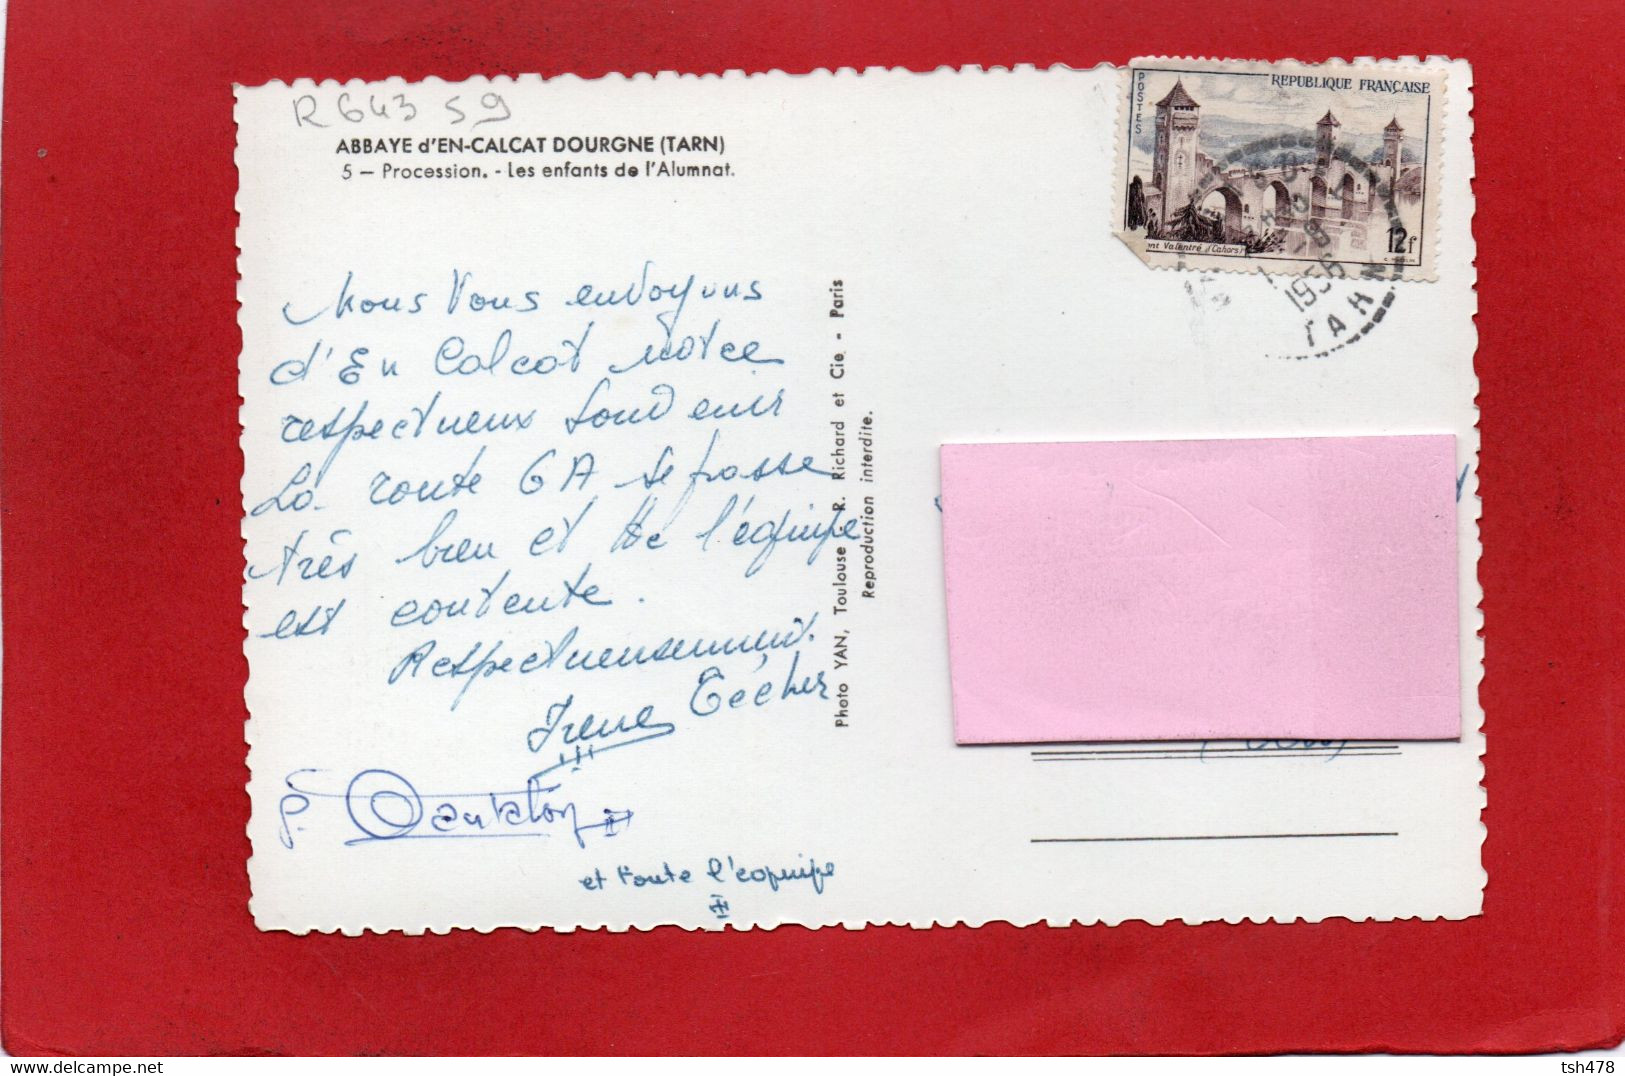 R 643 59
ABBAYE d'EN-CALCAT DOURGNE (TARN)
5 — Procession. - Les enfants de l'Alumnat.
POSTES
REPUBLIQUE FRANÇAISE
ont Valentré (Cahors)
12f
1956
TARN
Nous Vous envoyons
d'En Calcat notre
respectueux Souvenir
La route GA se passe
très bien et tte l'équipe
est contente.
Respectueusement.
Irene Técher
P.
et toute l'équipe
Photo YAN, Toulouse - R. Richard et Cie - Paris
Reproduction interdite.
delcampe.net
tsh478